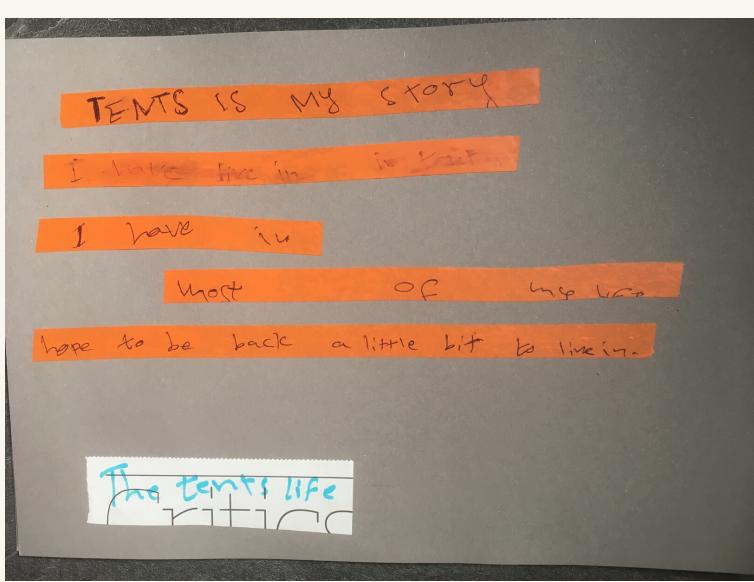 TENTS IS MY STORY
I have live in in tent
I have in
most of my life
hope to be back a little bit to live in.
The tents life
Critics